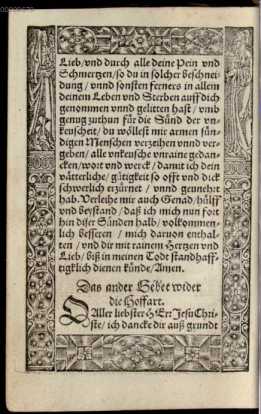 Lieb/vnd durch alle deine Pein vnd
Schmertzen/so du in solcher beschnei-
dung/vnnd sonsten ferners in allem
deinem Leben vnd Sterben auff dich
genommen vnnd gelitten hast/vmb
genug zuthun für die Sünd der vn-
keuscheit/du wöllest mir armen sün-
digen Menschen verzeihen vnnd ver-
geben/alle vnkeusche vnraine gedan-
cken/wort vnd werck/damit ich dein
vätterliche/gütigkeit so offt vnd dick
schwerlich erzürnet/vnnd genehrt
hab. Verleihe mir auch Genad/hülff
vnd beystand/daß ich mich nun fort
hin diser Sünden halb/volkommen-
lich bessern/mich daruon enthal-
ten/vnd dir mit rainem Hertzen vnd
Lieb/biß in meinen Todt standhaff-
tigklich dienen künde/Amen.
Das ander Gebet wider
die Hoffart.
O Aller liebster HErr Jesu Chri-
ste/ich dancke dir auß grundt